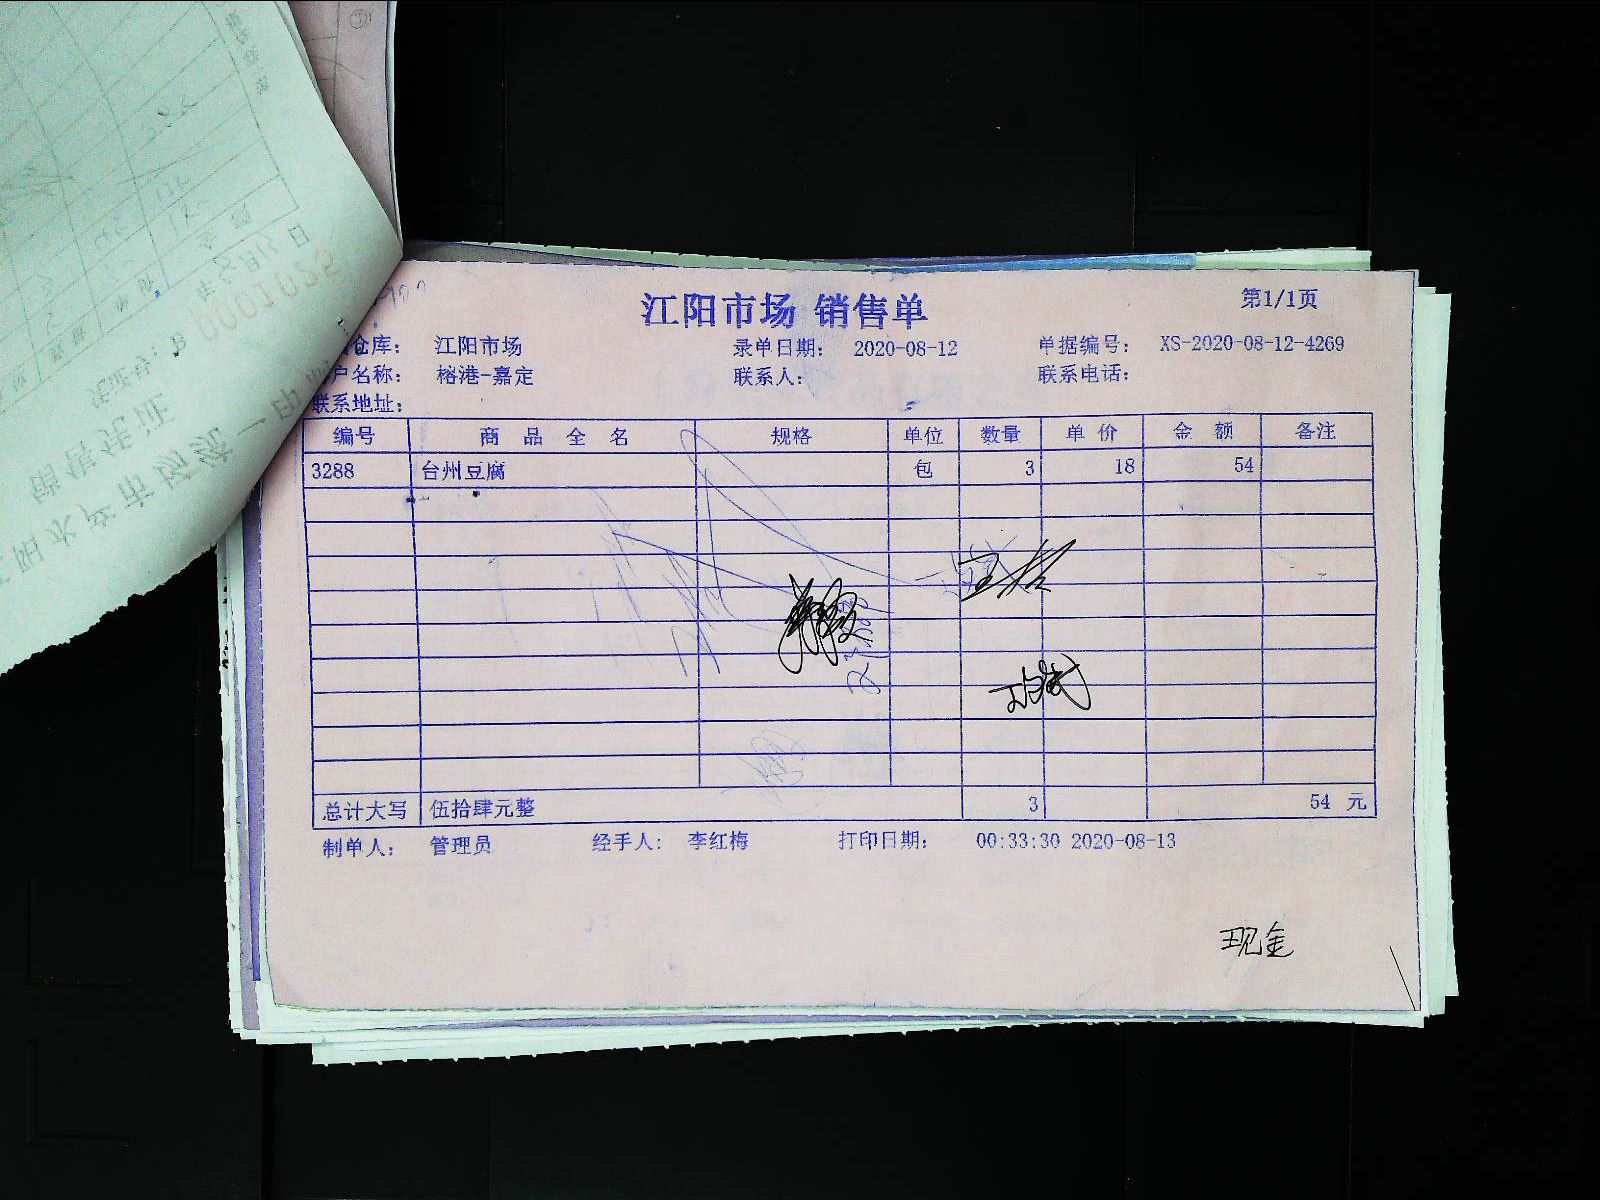 江阳市场 销售单
第1/1页
仓库： 江阳市场 录单日期： 2020-08-12 单据编号： XS-2020-08-12-4269
户名称： 榕港-嘉定 联系人： 联系电话：
联系地址：
编号 商品全名 规格 单位 数量 单价 金额 备注
3288 台州豆腐 包 3 18 54
总计大写 伍拾肆元整 3 54 元
制单人： 管理员 经手人： 李红梅 打印日期： 00:33:30 2020-08-13
现金